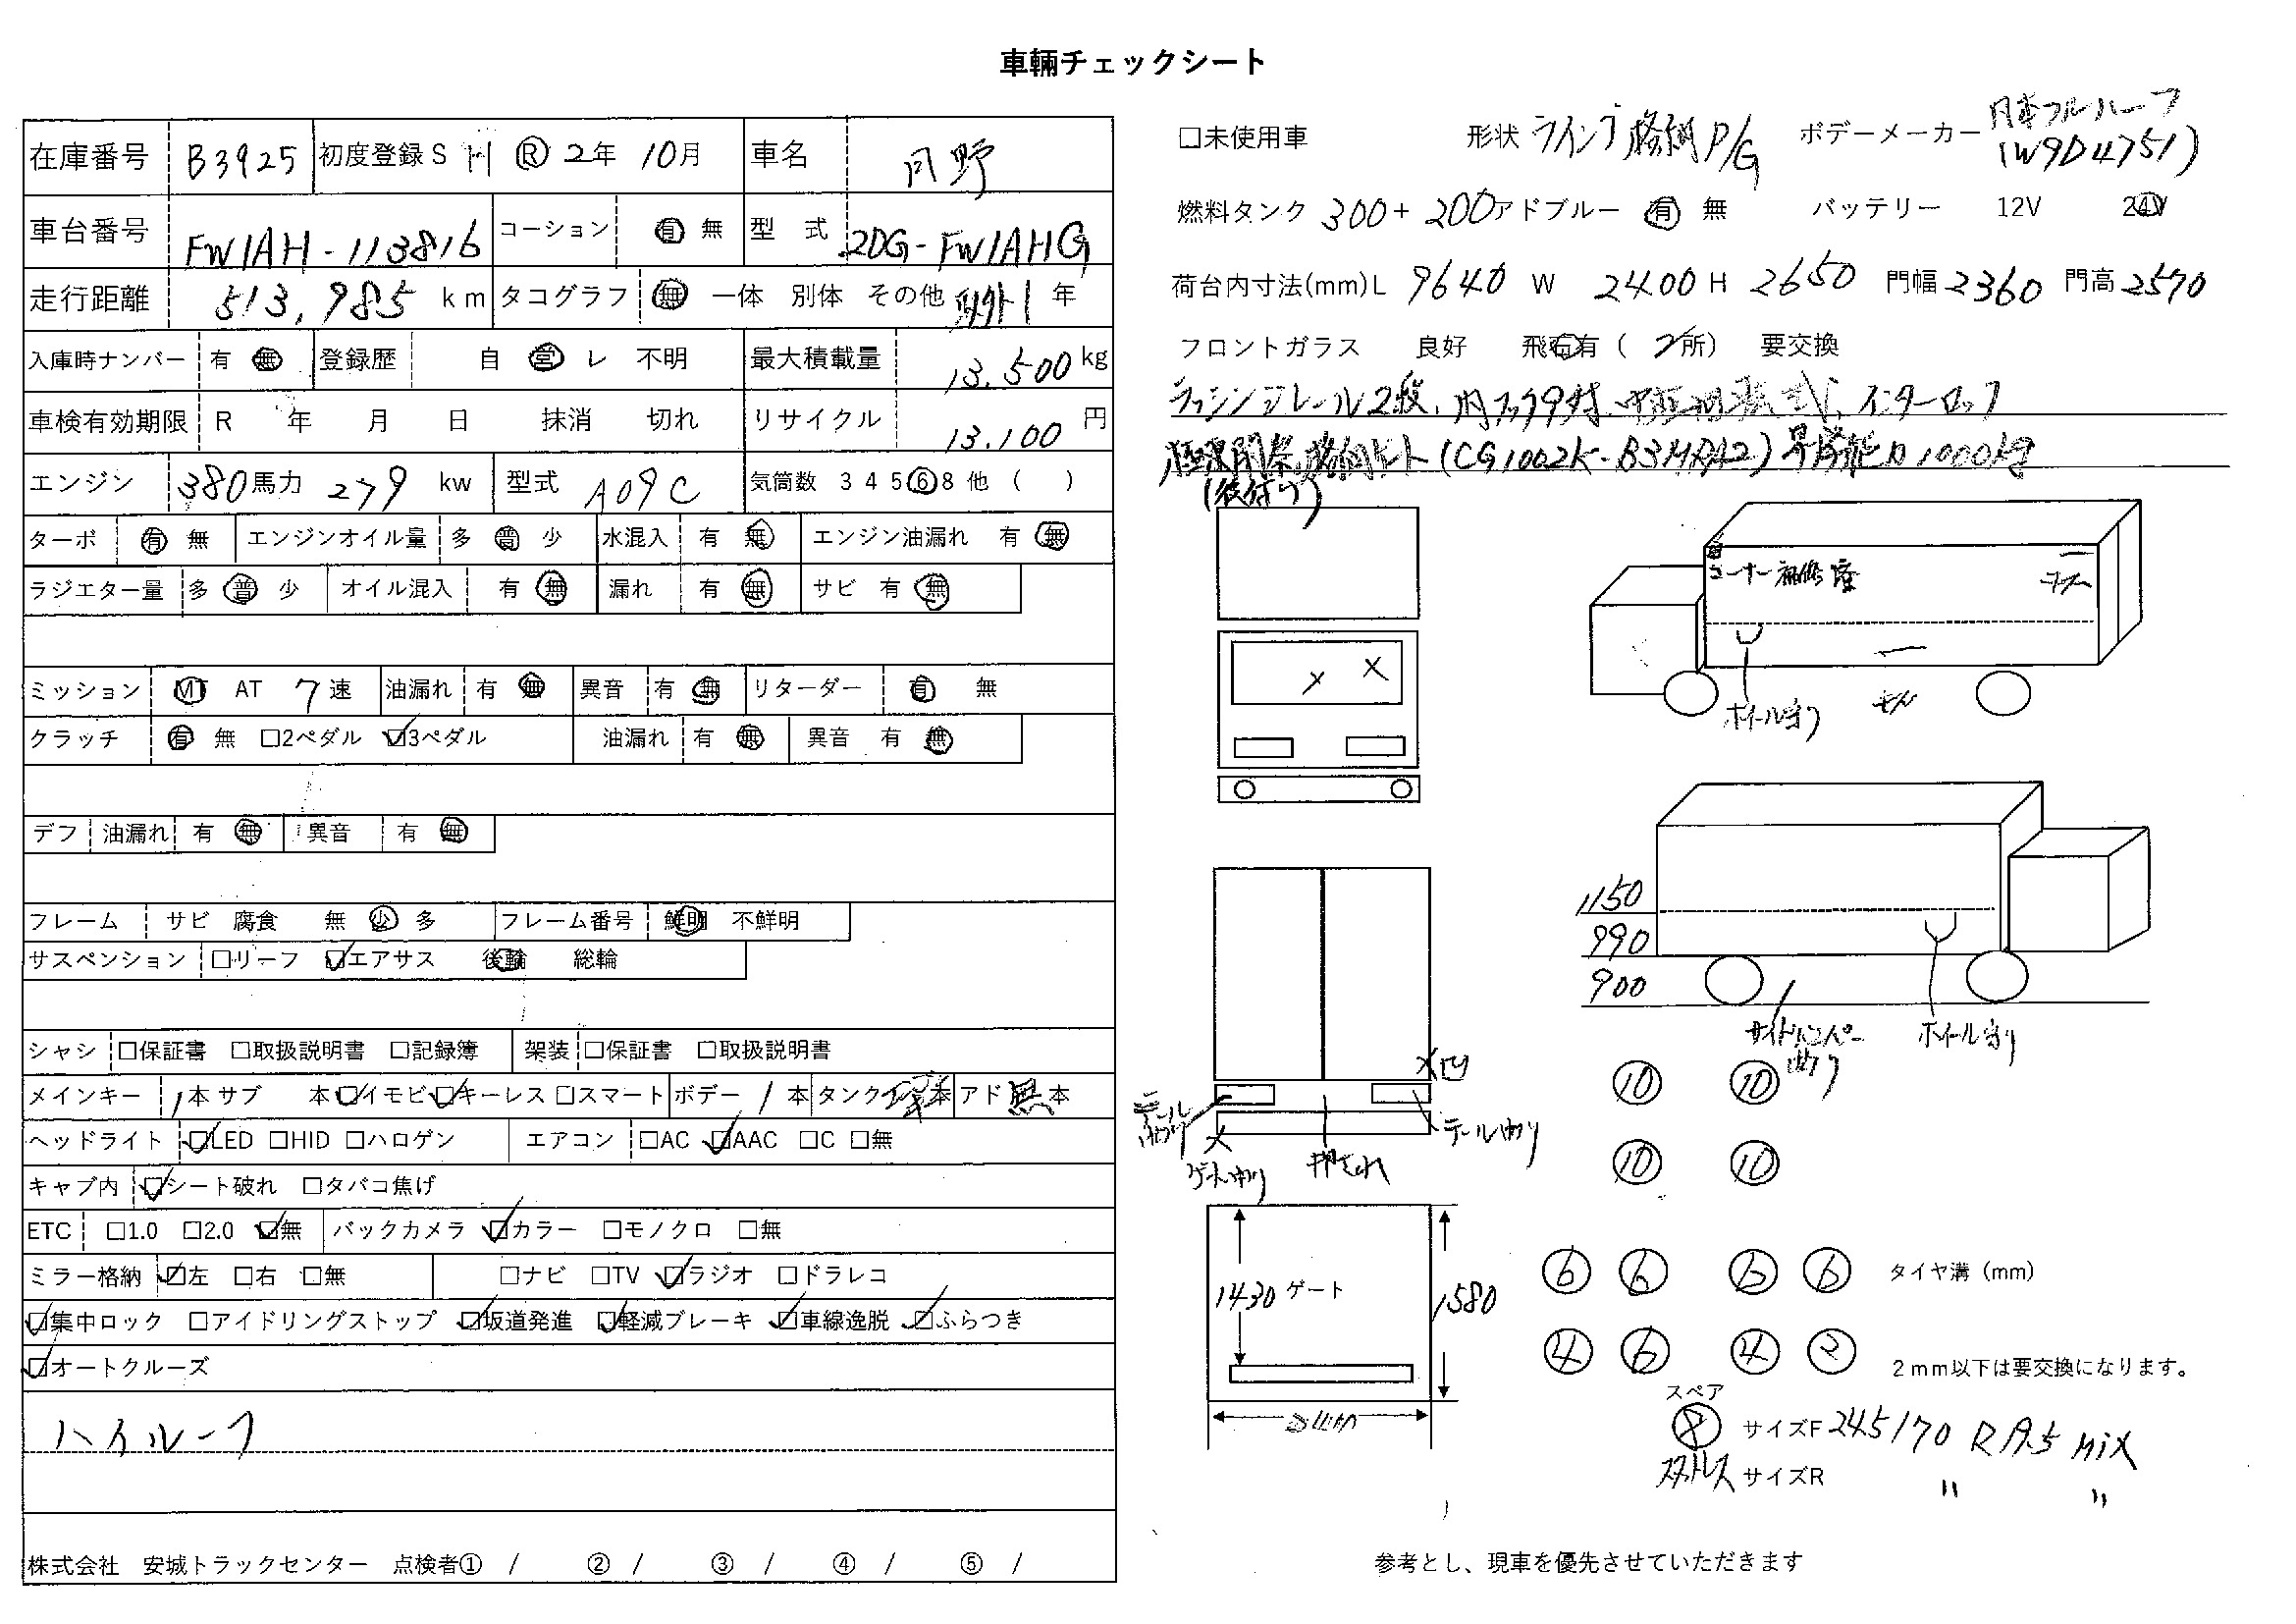 車輛チェックシート
在庫番号 B3925 初度登録 S H Ⓡ 2年 10月 車名 日野
車台番号 FW1AH-113816 コーション 有 無 型 式 2DG-FW1AHG
走行距離 513,985 km タコグラフ 無 一体 別体 その他 1年
入庫時ナンバー 有 無 登録歴 自 営 レ 不明 最大積載量 13.500 kg
車検有効期限 R 年 月 日 抹消 切れ リサイクル 13.100 円
エンジン 380馬力 279 kw 型式 A09C 気筒数 3 4 5 ⑥ 8 他 ( )
ターボ 有 無 エンジンオイル量 多 普 少 水混入 有 無 エンジン油漏れ 有 無
ラジエター量 多 普 少 オイル混入 有 無 漏れ 有 無 サビ 有 無
ミッション MT AT 7速 油漏れ 有 無 異音 有 無 リターダー 有 無
クラッチ 有 無 □2ペダル ☑3ペダル 油漏れ 有 無 異音 有 無
デフ 油漏れ 有 無 異音 有 無
フレーム サビ 腐食 無 少 多 フレーム番号 鮮明 不鮮明
サスペンション □リーフ ☑エアサス 後輪 総輪
シャシ □保証書 □取扱説明書 □記録簿 架装 □保証書 □取扱説明書
メインキー 1本 サブ 本 ☑イモビ ☑キーレス □スマート ボデー 1本 タンク 本 アド 無 本
ヘッドライト ☑LED □HID □ハロゲン エアコン □AC ☑AAC □C □無
キャブ内 ☑シート破れ □タバコ焦げ
ETC □1.0 □2.0 ☑無 バックカメラ ☑カラー □モノクロ □無
ミラー格納 ☑左 □右 □無 □ナビ □TV ☑ラジオ □ドラレコ
☑集中ロック □アイドリングストップ ☑坂道発進 ☑軽減ブレーキ ☑車線逸脱 ☑ふらつき
☑オートクルーズ
ハイルーフ
株式会社 安城トラックセンター 点検者① / ② / ③ / ④ / ⑤ /
□未使用車 形状 ウイング格納P/G ボデーメーカー 日本フルハーフ
(W9D4751)
燃料タンク 300+200 アドブルー 有 無 バッテリー 12V 24V
荷台内寸法(mm) L 9640 W 2400 H 2650 門幅 2360 門高 2570
フロントガラス 良好 飛石有 ( 2所) 要交換
ラッシングレール2段、内フック9対、 インターロック
(CG1002K-B3MRA2) 昇降能力1000kg
(後付け)
コーナー補修 キズ
ホイール守り キズ
1150
990
900
サイドバンパー ホイール守り
曲り
X凹
テール曲り テール曲り
ゲート曲り 押され
⑩ ⑩
⑩ ⑩
1430 ゲート 1580
⑥ ⑥ ⑥ ⑥ タイヤ溝（mm）
④ ⑥ ④ ② 2mm以下は要交換になります。
スペア
⑧ サイズF 245/70 R19.5 MiX
スタットレス サイズR 〃 〃
参考とし、現車を優先させていただきます